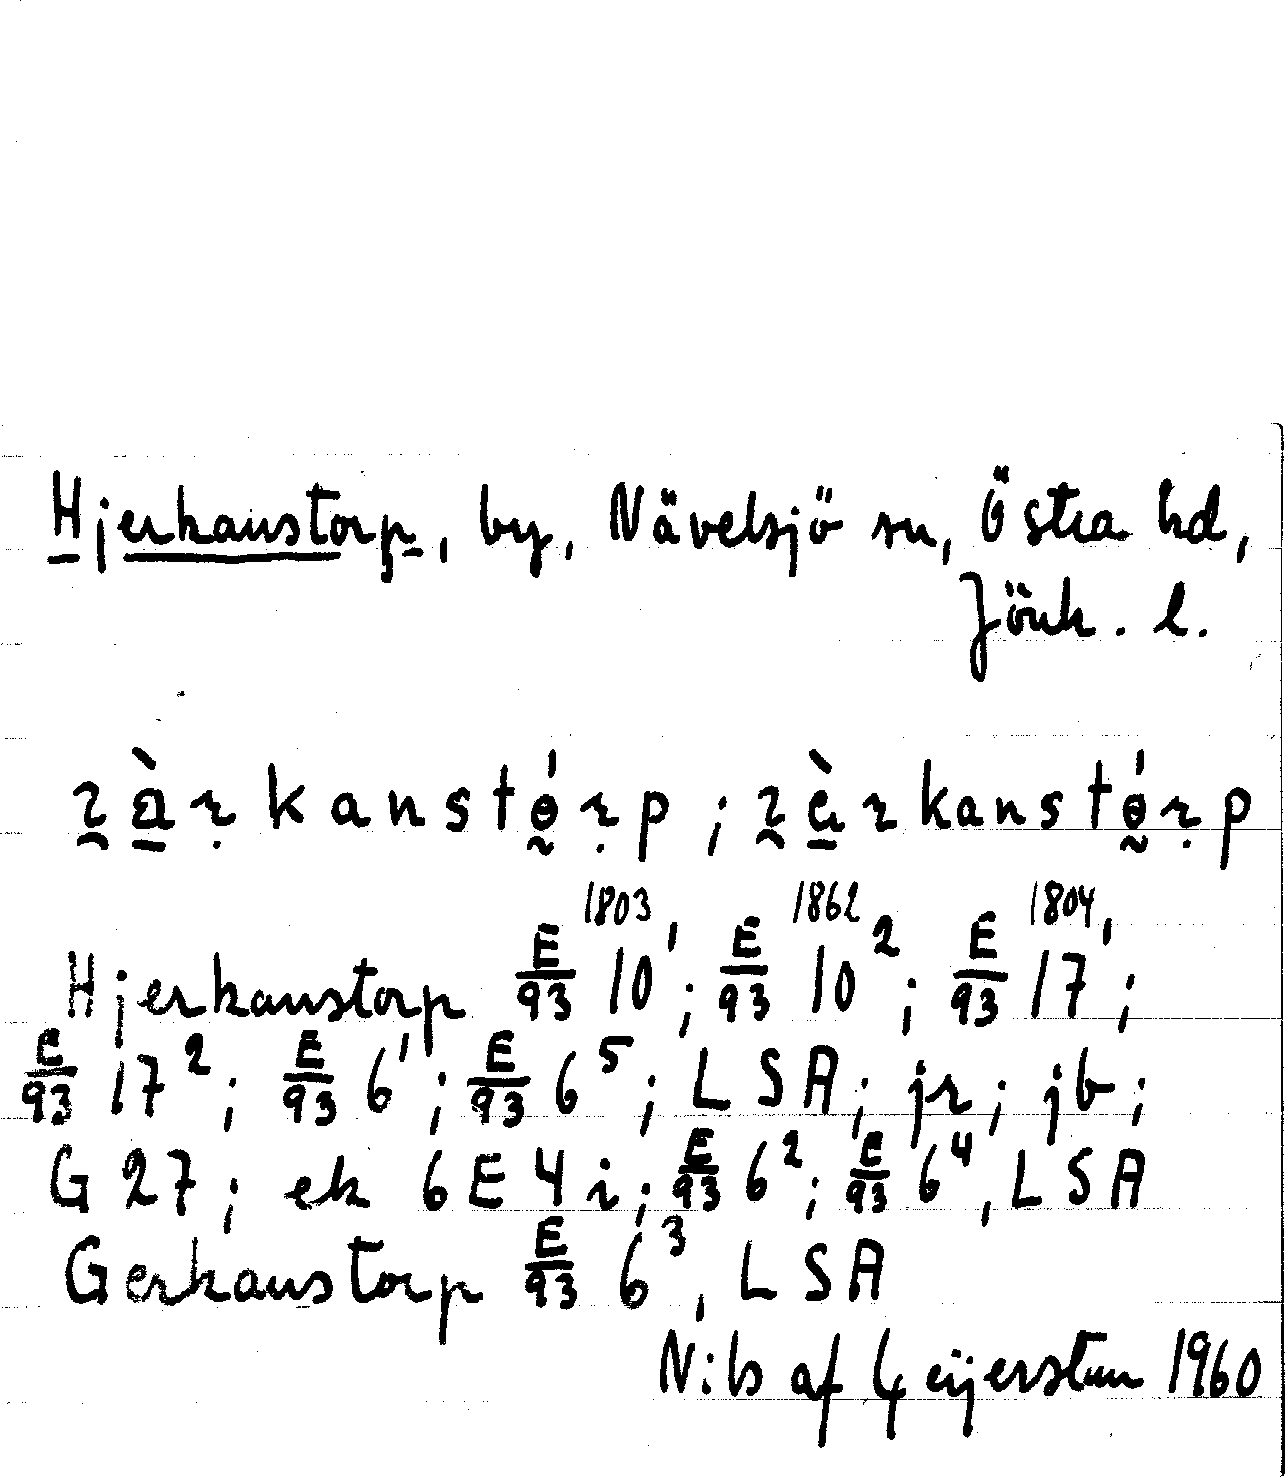 Hjerkanstorp, by, Nävelsjö sn, Östra hd,
Jönk. l.
Hjerkanstorp E/93 10¹ 1803; E/93 10² 1862; E/93 17¹ 1804;
E/93 17²; E/93 6¹; E/93 6⁵; LSA; jr; jb;
G 27; ek 6E4i; E/93 6²; E/93 6⁴, LSA
Gerkanstorp E/93 6³, LSA
Nils af 1960